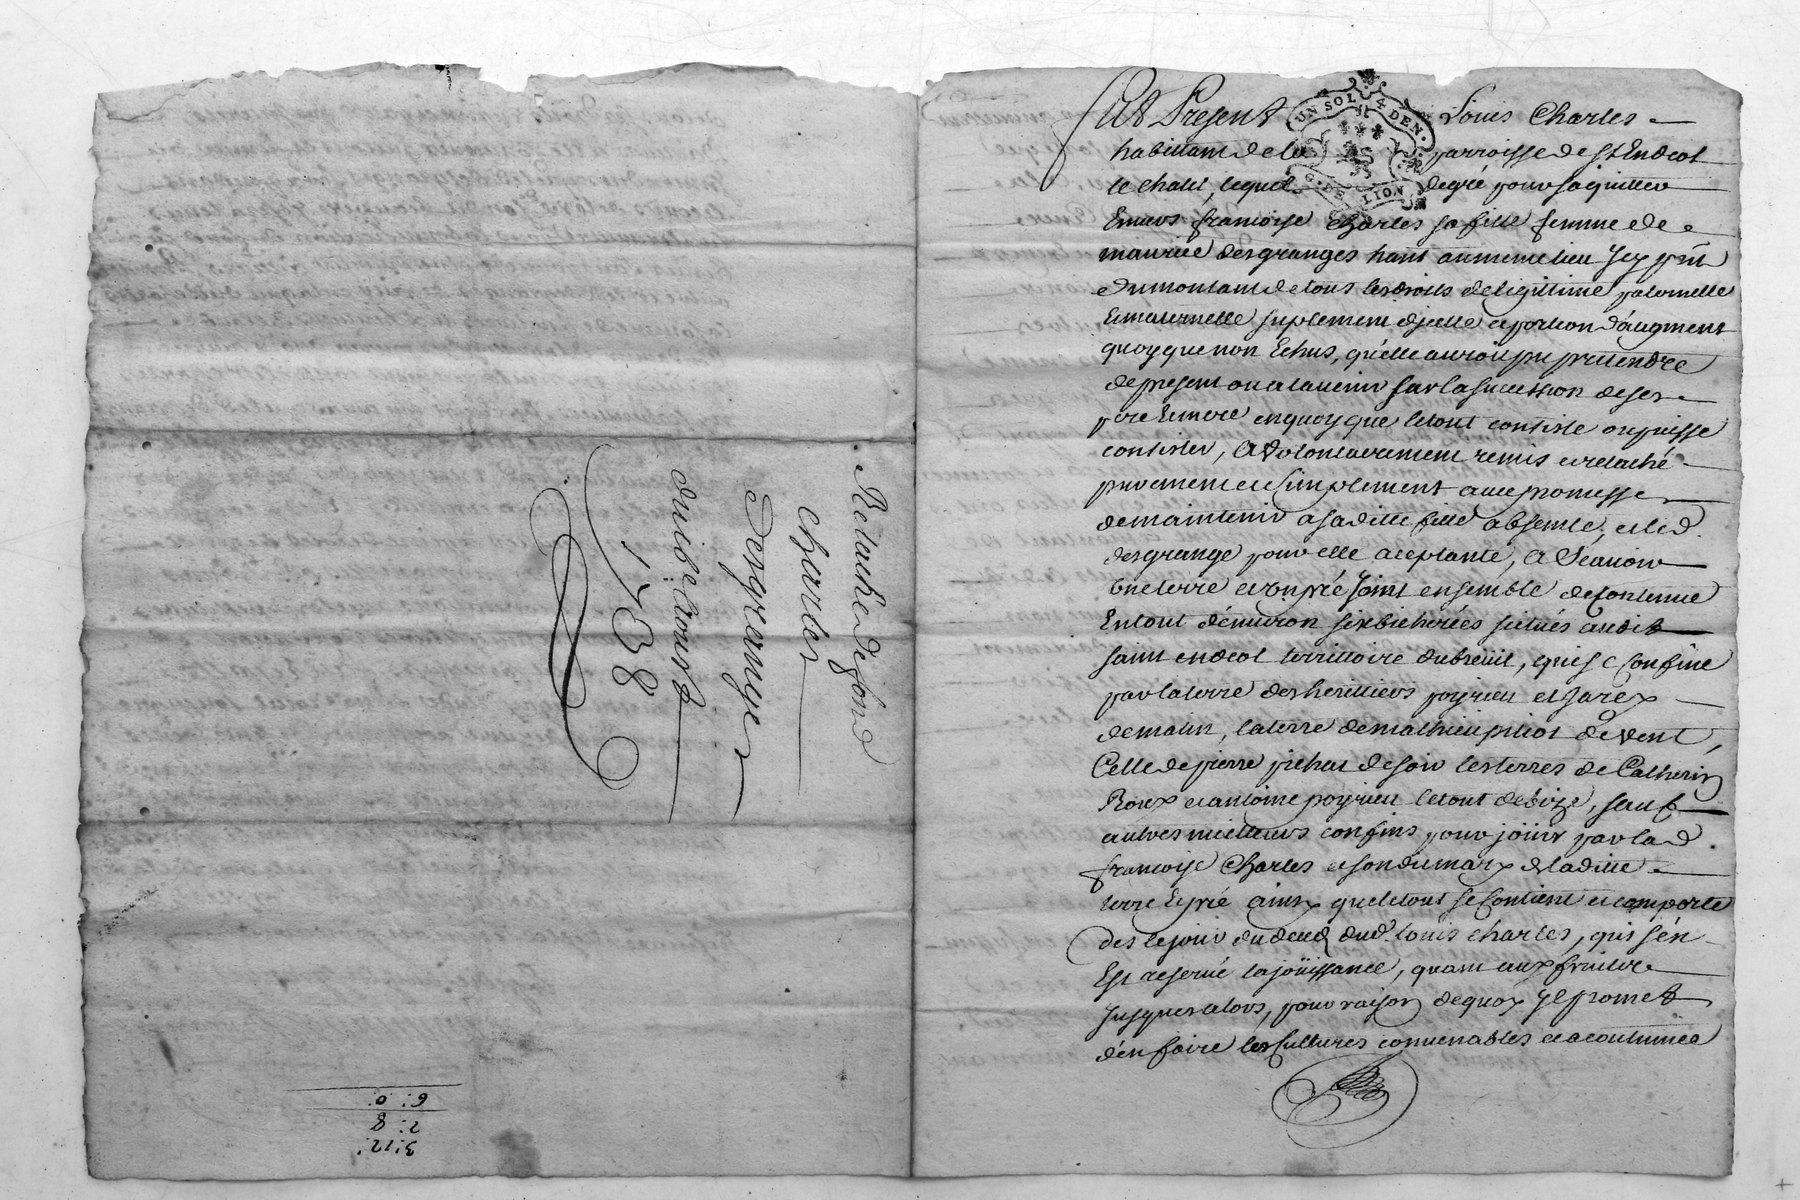 Relaché de fond
Charles
Desgranges
du 18e aoust
1738
6: 0:
2: 8
3: 12:
UN SOL 4 DEN.
G. DE LION
Fut Present Louis Charles
habittant de la parroisse de St Andeol
le chatel, lequel de gré pour saquitter
Envers francoise Charles sa fille femme de
maurice desgranges hant au meme lieu Icy pnt
du montant de tous les droits de legittime paternelle
Et maternelle suplement dicelle et portion d'augment
quoyque non Echus, quelle auroit pu pretendre
de present ou a lavenir sur la succession de ses
pere Et mere en quoy que le tout consiste ou puisse
consister, A volontairement remis et relaché
purement et simplement avec promesse
de maintenir a sa ditte fille absente, et led.
desgrange pour elle aceptante, A Scavoir
une terre et un pré Joint ensemble de contenue
En tout d'environ six bicherées scitués audit
saint andeol territtoire du breüil, qui se confine
par la terre des herittiers poyrieu et Jarex
de matin, la terre de mathieu piliot de vent,
Celle de pierre pichat de soir les terres de Catherin
Roux et antoine poyrieu le tout de bize, sauf
autres meilleurs confins pour joüir par lad.
francoise Charles et son dit mary de la ditte
terre Et pré ainsy que le tout se Contient et comporte
des le jour du deced dud. Louis charles, qui s'en
Est reservé la joüissance, quant aux fruits
Jusques alors, pour raison de quoy Il promet
d'en faire les Cultures convenables et acoutumée